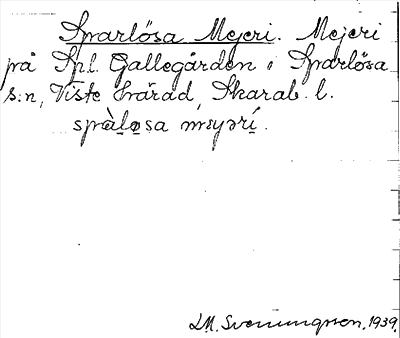 Sparlösa Mejeri. Mejeri
på Spl. Gallegården i Sparlösa
s:n, Viste härad, Skarab. l.
spàlosa mɛyərí.
LM. Svenungsson, 1939.